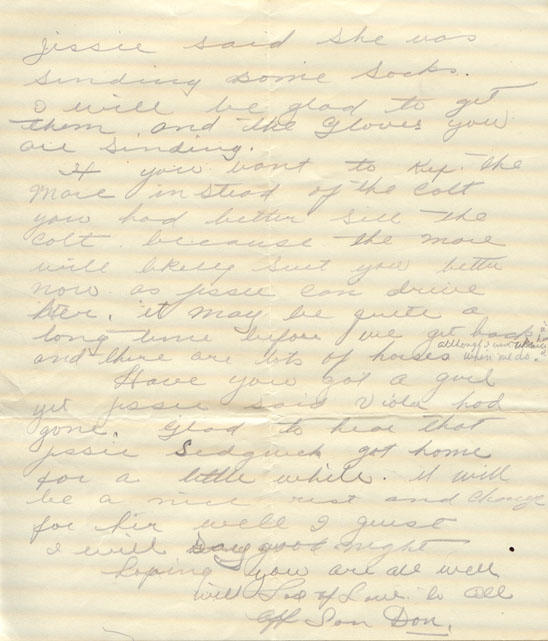 Jessie said she was
sinding some socks.
I will be glad to get
them and the Gloves you
are sinding.
If you want to kep the
mare instead of the colt
you had better sill the
colt because the mare
will likely suit you better
now as jessie can drive
her. it may be quite a
long time before we get back
and there are lots of horses when we do.
Have you got a girl
yet jessie said Viola had
gone. Glad to hear that
jessie Sedgwick got home
for a little while. it will
be a nice rest and change
for hir well I guist
I will say good night
hoping you are all well
with Lod of Love to All
Aff Son Don.